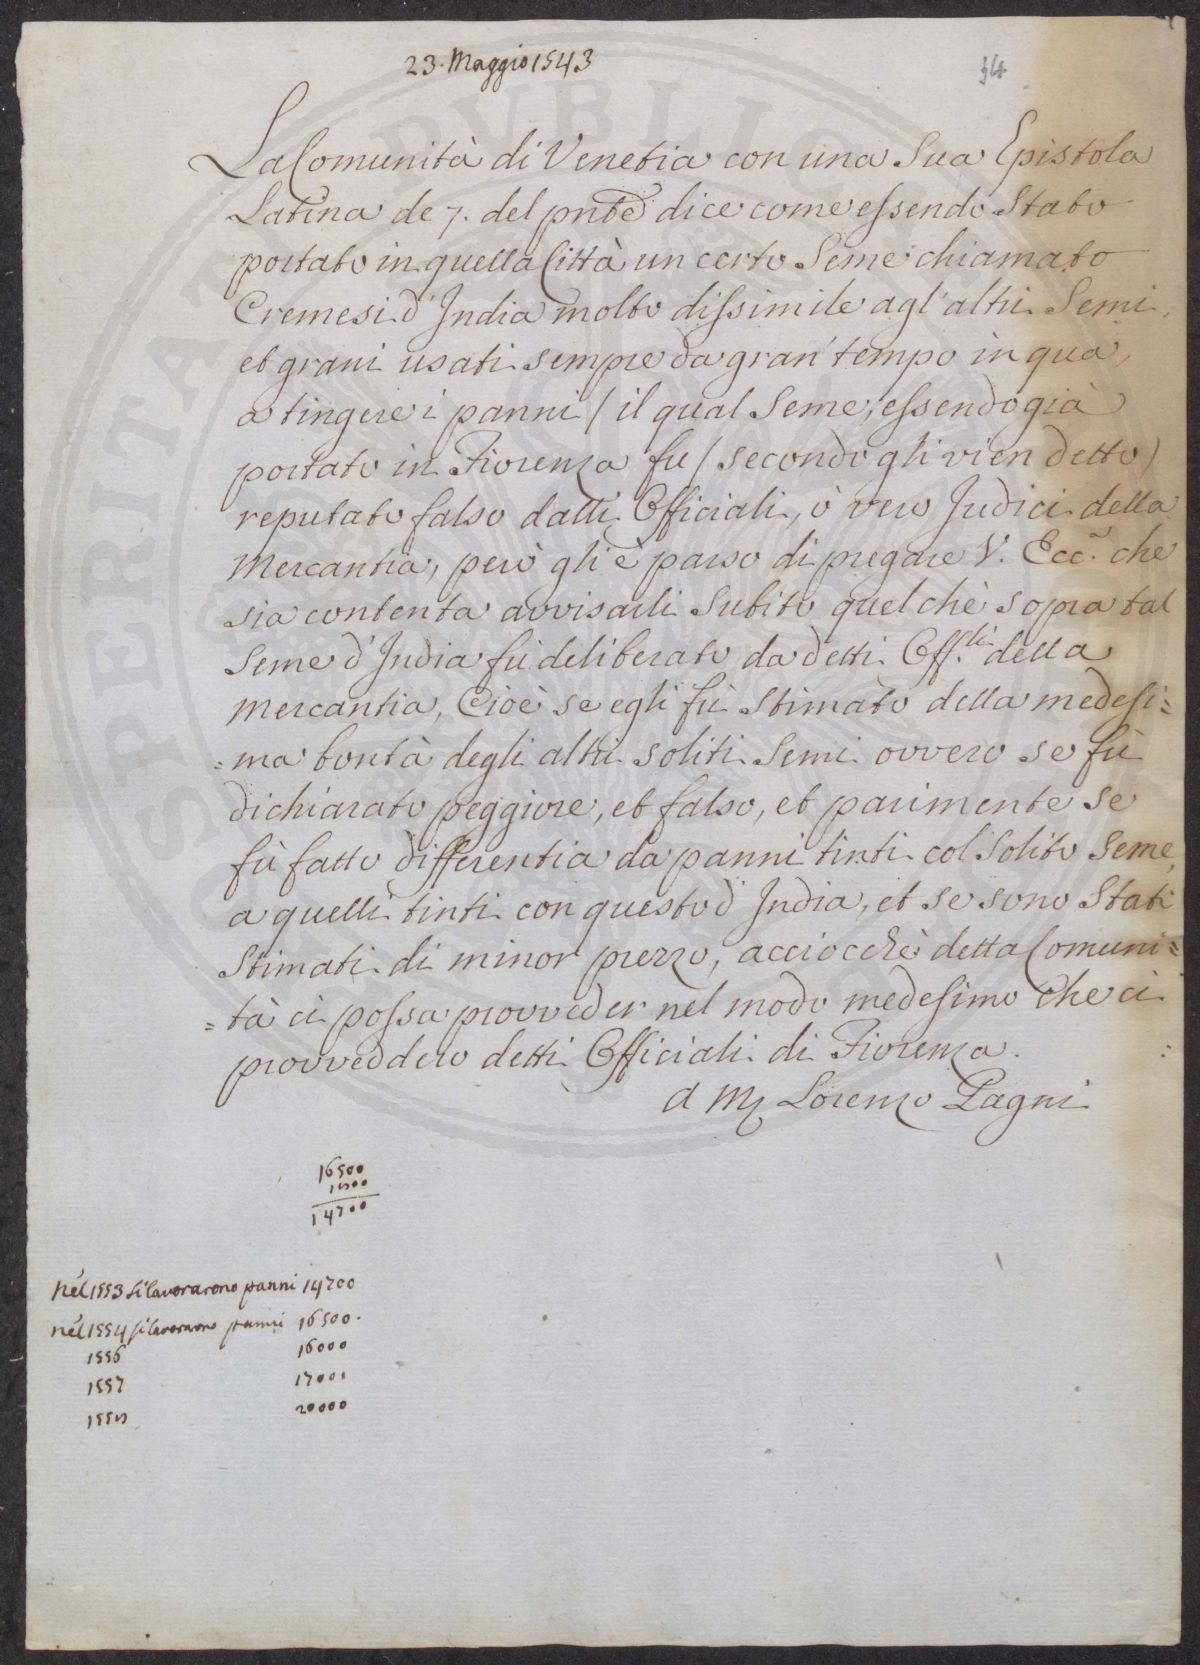 23. Maggio 1543
34
La Comunità di Venetia con una Sua Epistola
Latina de 7. del pñte dice come essendo Stato
portato in quella Città un certo Seme chiamato
Cremesi d'India molto dissimile agl'altri Semi,
et grani usati sempre da gran tempo in quà,
a tingere i panni / il qual Seme, essendo già
portato in Fiorenza fu / secondo gli vien detto /
reputato falso dalli Officiali, ò vero Judici della
Mercantia, però gli è parso di pregare V. Ecc.ª che
sia contenta avvisarli Subito quel chè sopra tal
Seme d'India fù deliberato da detti Off.li della
Mercantia, Cioè se egli fù Stimato della medesi=
=ma bontà degli altri soliti Semi ovvero se fù
dichiarato peggiore, et falso, et parimente se
fù fatto differentia da panni tinti col Solito Seme,
a quelli tinti con questo d'India, et se sono Stati
Stimati di minor prezzo, acciocchè detta Comuni=
=tà ci possa provveder nel modo medesimo che ci
provveddero detti Officiali di Fiorenza.
A Mʒ Lorenzo Pagni
16500
1800
14700
Nel 1553 si lavorarono panni 14700
nel 1554 si lavorarono panni 16500.
1556 16000
1557 17000
1558 20000
PUBLICA
SPERITAT